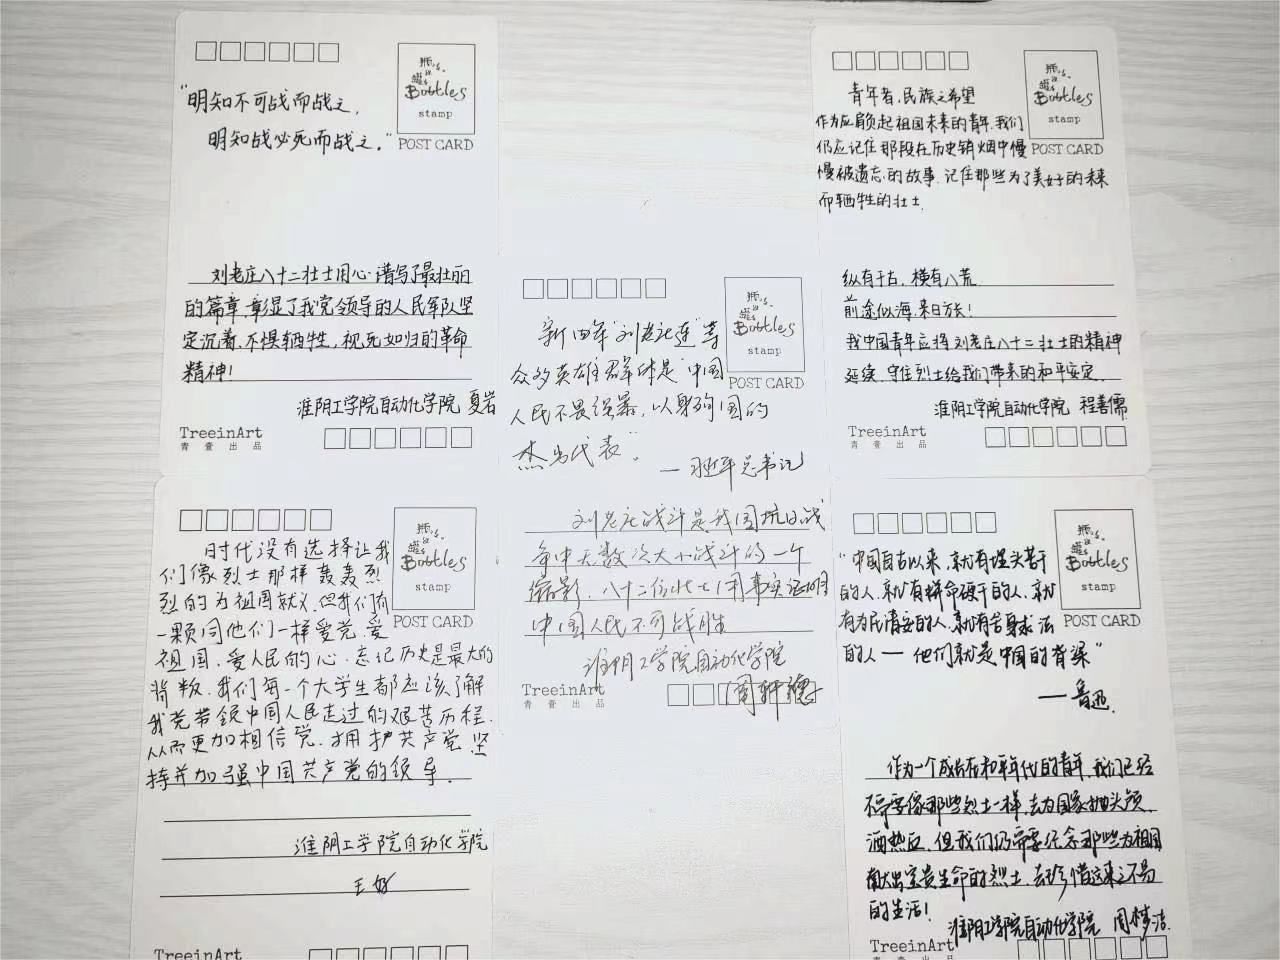 "明知不可战而战之，
明知战必死而战之。"
Bottles
stamp
POST CARD
刘老庄八十二壮士用心谱写了最壮丽
的篇章，彰显了我党领导的人民军队坚
定沉着、不惧牺牲，视死如归的革命
精神！
淮阴工学院自动化学院 夏岩
TreeinArt
青壹出品
青年者，民族之希望
作为应肩负起祖国未来的青年，我们
仍应记住那段在历史硝烟中慢
慢被遗忘的故事，记住那些为了美好的未来
而牺牲的壮士
Bottles
stamp
POST CARD
纵有千古，横有八荒
前途似海，来日方长！
我中国青年应将刘老庄八十二壮士的精神
延续，守住烈士给我们带来的和平安定。
淮阴工学院自动化学院 程善儒
TreeinArt
青壹出品
新四军"刘老庄连"等
众多英雄群体是"中国
人民不畏强暴，以身殉国的
杰出代表"。
—习近平总书记
Bottles
stamp
POST CARD
刘老庄战斗是我国抗日战
争中无数次大小战斗的一个
缩影，八十二位壮士用事实证明
中国人民不可战胜
淮阴工学院自动化学院
周轩德
TreeinArt
青壹出品
时代没有选择让我
们像烈士那样轰轰烈
烈的为祖国献义，但我们有
一颗同他们一样爱党、爱
祖国、爱人民的心，忘记历史是最大的
背叛，我们每一个大学生都应该了解
我党带领中国人民走过的艰苦历程，
从而更加相信党，拥护共产党，坚
持并加强中国共产党的领导。
Bottles
stamp
POST CARD
淮阴工学院自动化学院
王好
TreeinArt
"中国自古以来，就有埋头苦干
的人，就有拼命硬干的人，就
有为民请命的人，就有舍身求法
的人——他们就是中国的脊梁"
——鲁迅
Bottles
stamp
POST CARD
作为一个成长在和平年代的青年，我们已经
不需要像那些烈士一样，去为国家抛头颅，
洒热血，但我们仍需要纪念那些为祖国
献出宝贵生命的烈士，去珍惜这来之不易
的生活！
淮阴工学院自动化学院 周梦洁
TreeinArt